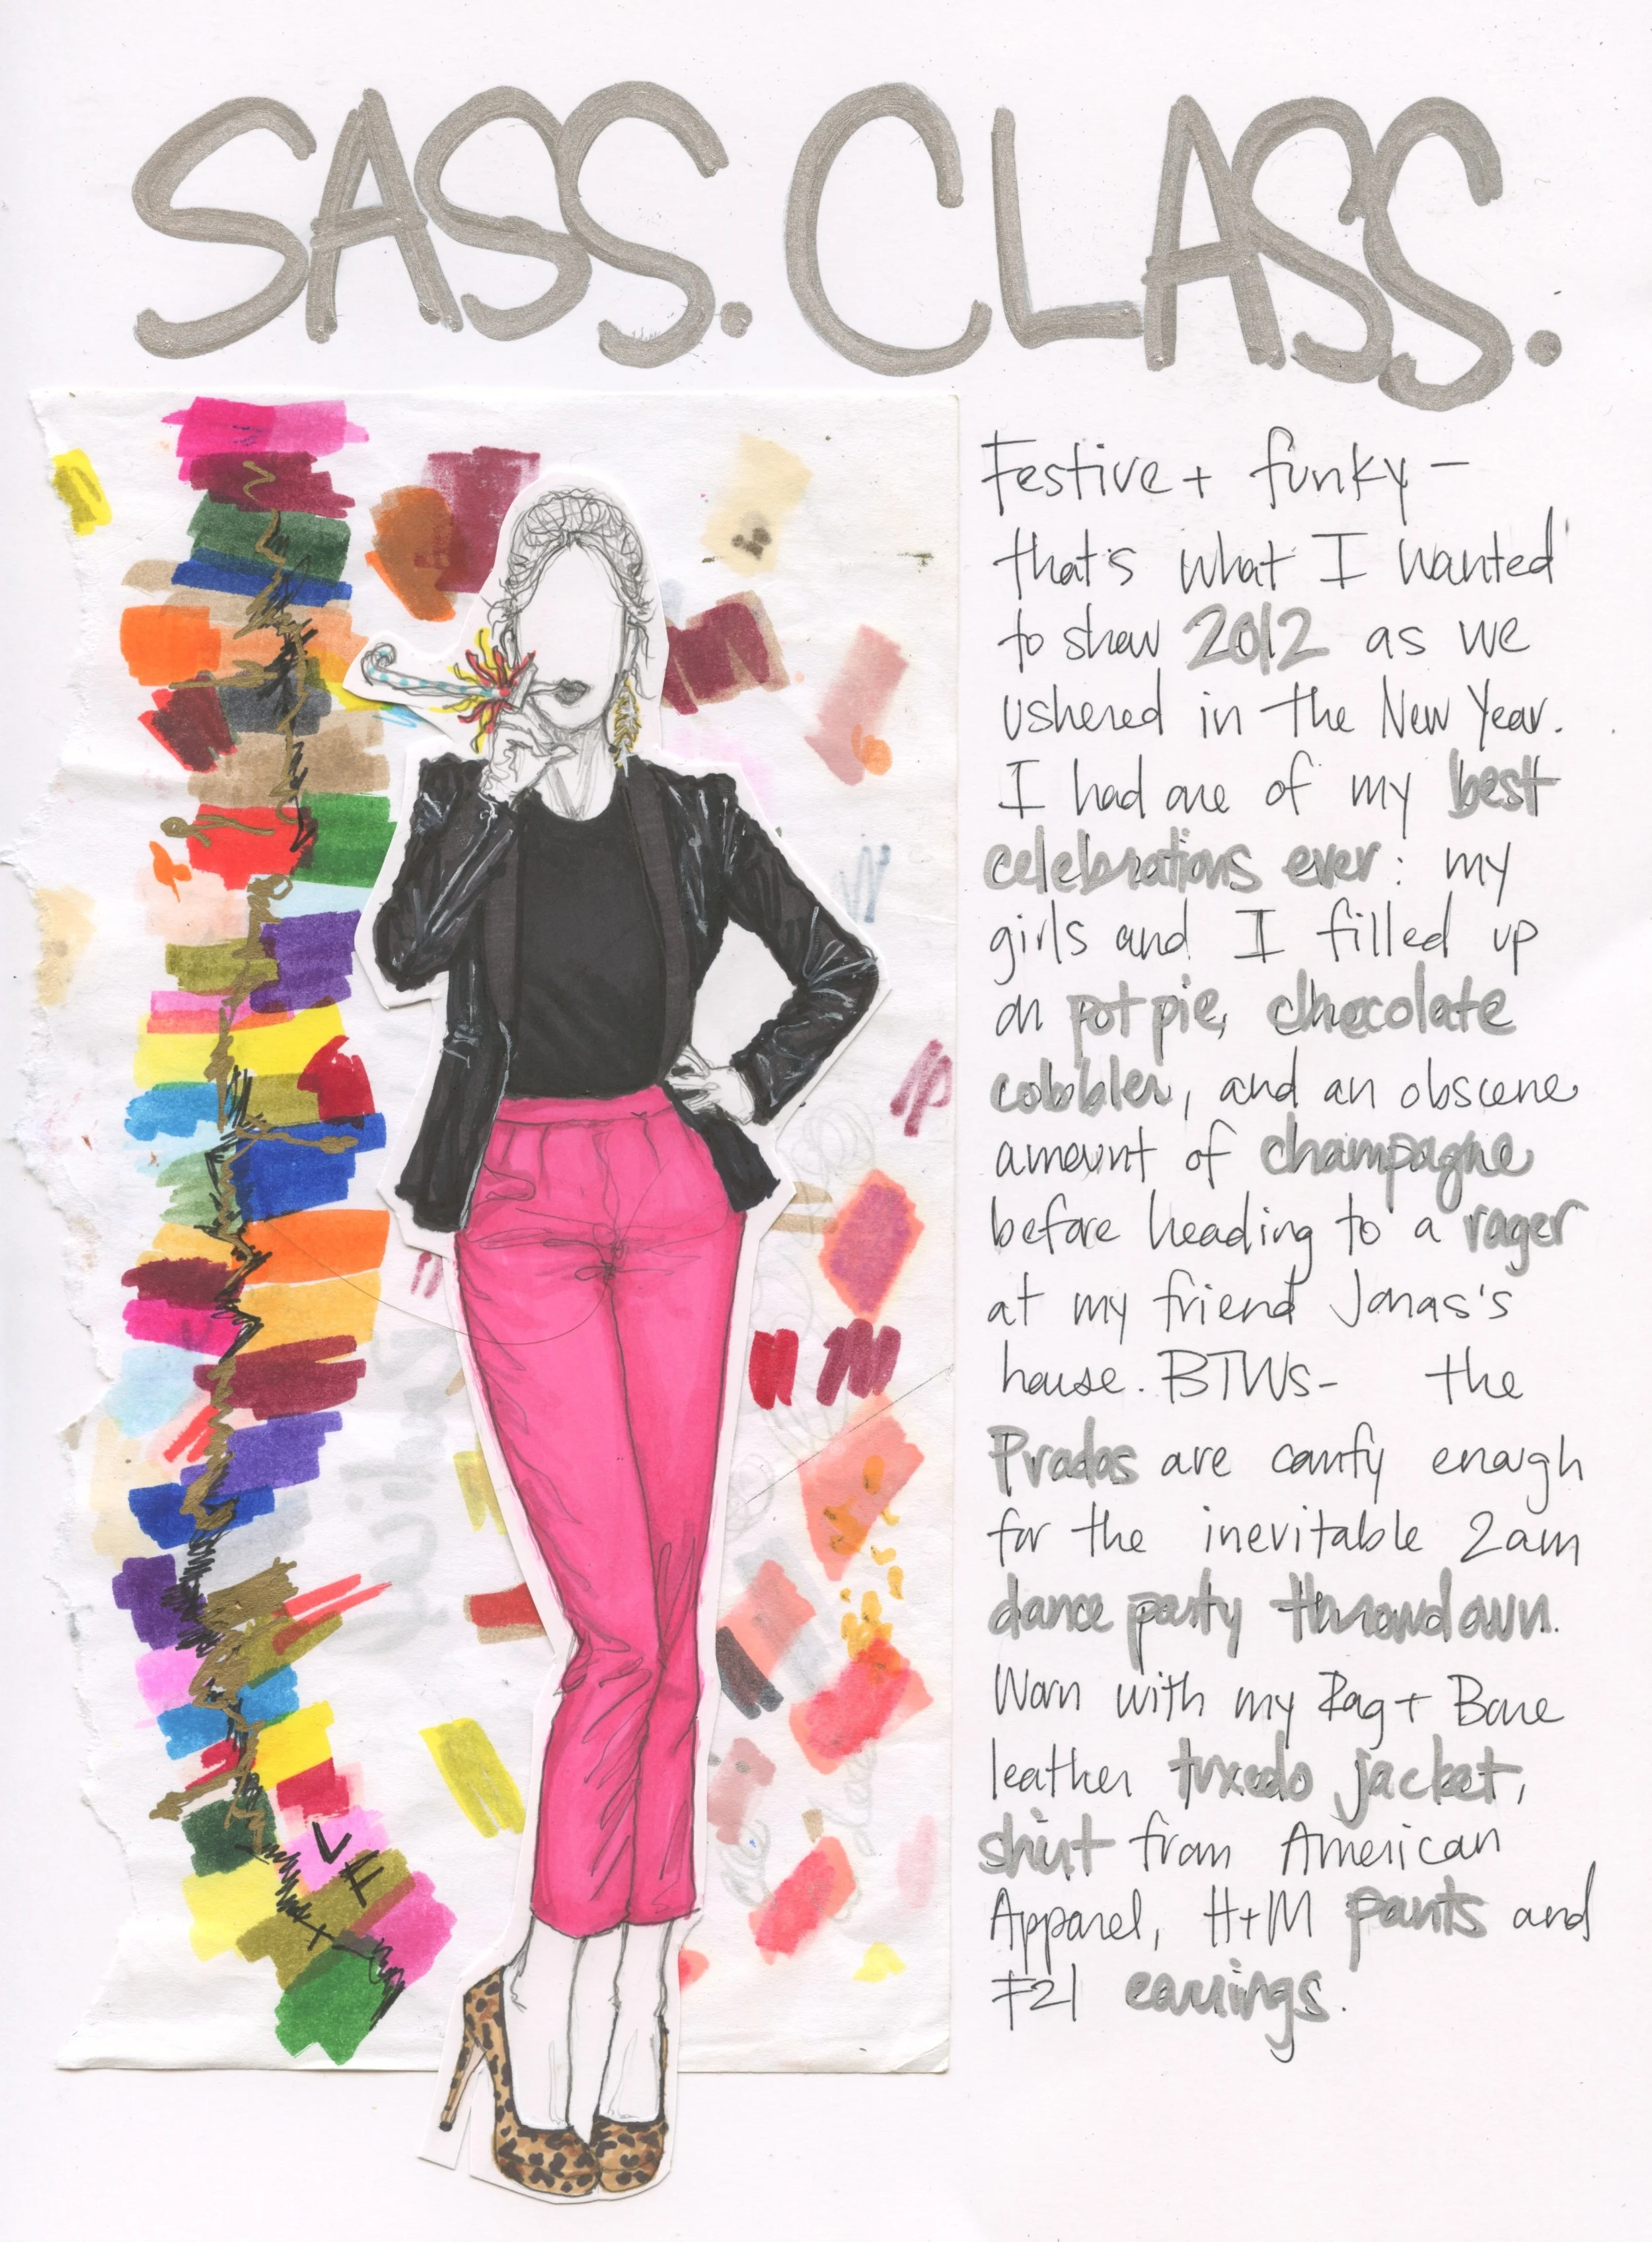 SASS. CLASS.
Festive + funky -
that's what I wanted
to show 2012 as we
ushered in the New Year.
I had one of my best
celebrations ever: my
girls and I filled up
on pot pie, chocolate
cobbler, and an obscene
amount of champagne
before heading to a rager
at my friend Jonas's
house. BTWs- the
Pradas are comfy enough
for the inevitable 2am
dance party throwdown.
Worn with my Rag + Bone
leather tuxedo jacket,
shirt from American
Apparel, H+M pants and
F21 earrings.